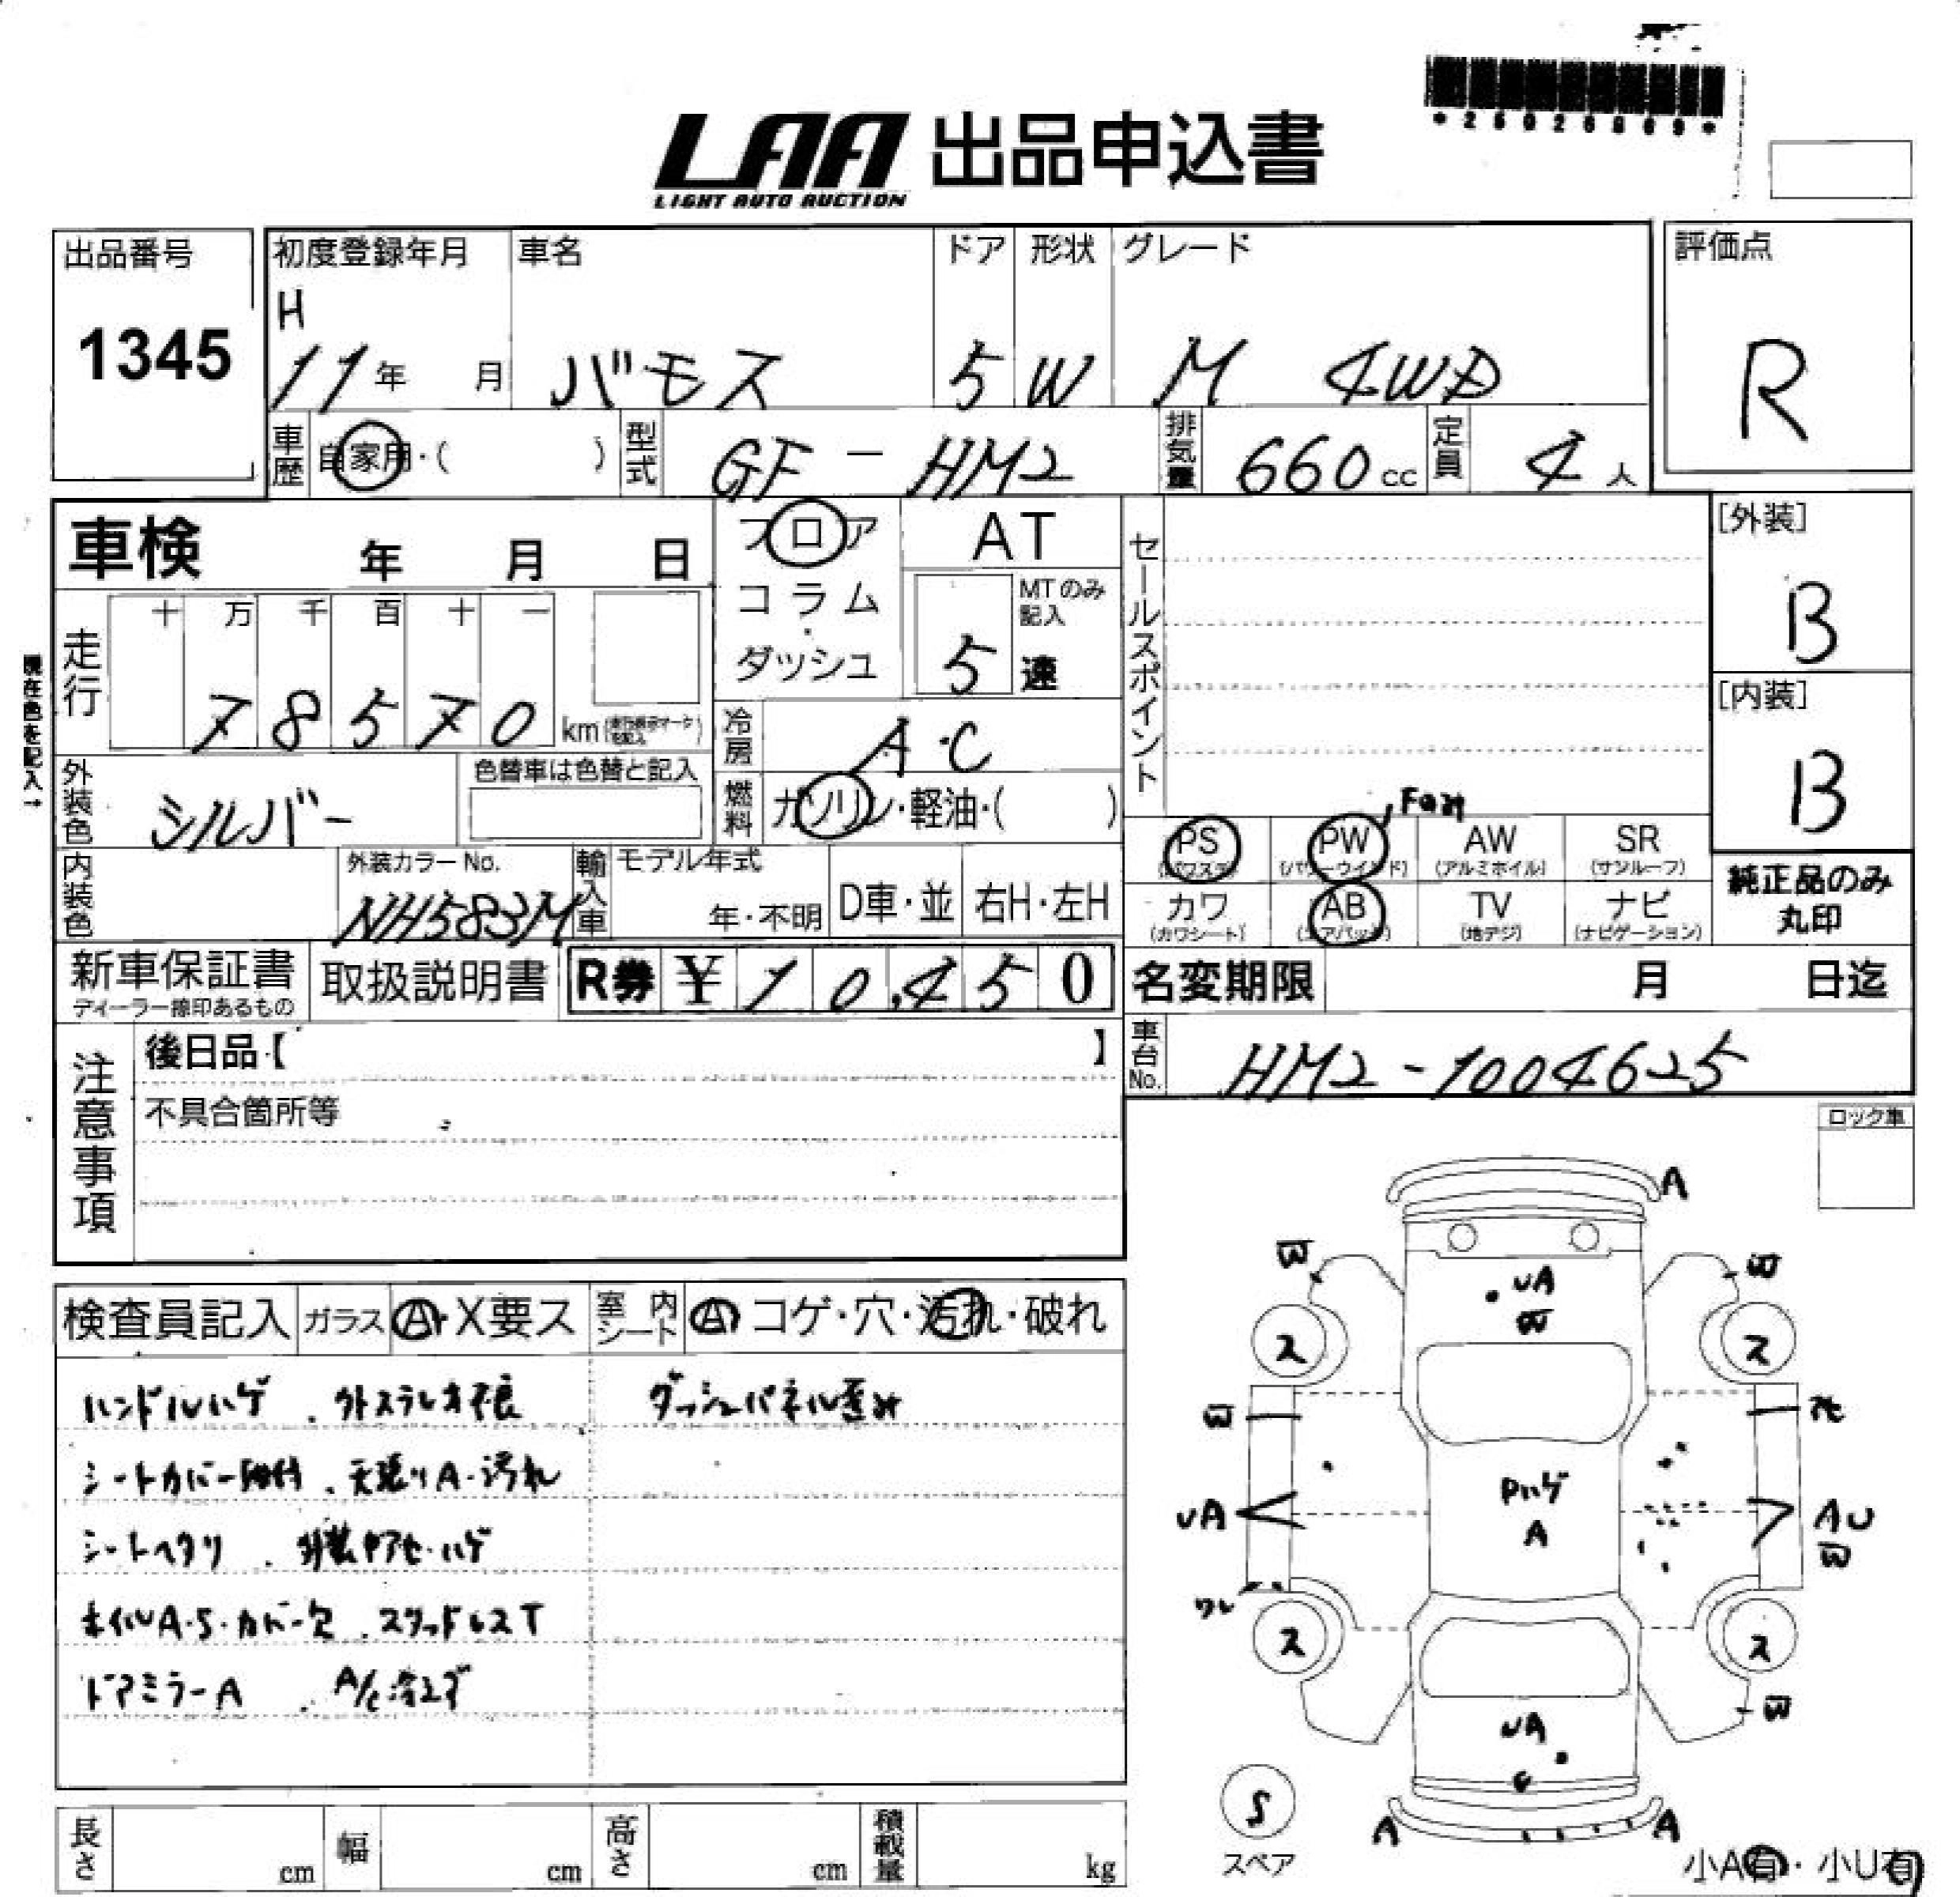 LAA 出品申込書
LIGHT AUTO AUCTION
出品番号
1345
初度登録年月
H
11年 月
車名
バモス
ドア
5
形状
W
グレード
M 4WD
評価点
R
車歴 自家用・( )
型式 GF-HM2
排気量 660cc
定員 4人
車検 年 月 日
フロア
コラム
・
ダッシュ
AT
MTのみ
記入
5 速
セールスポイント
[外装]
B
[内装]
B
現在色を記入→
走行 十 万 千 百 十 一
78570 km
冷房 A・C
外装色 シルバー
色替車は色替と記入
燃料 ガソリン・軽油・( )
PS PW AW SR
(パワステ) (パワーウインド) (アルミホイル) (サンルーフ)
カワ AB TV ナビ
(カワシート) (エアバッグ) (地デジ) (ナビゲーション)
純正品のみ
丸印
内装色
外装カラーNo.
NH583M
輸入車
モデル年式
年・不明
D車・並
右H・左H
新車保証書
取扱説明書
R券 ¥10,450
名変期限 月 日迄
車台No. HM2-1004625
注意事項
後日品・【 】
不具合箇所等
ロック車
検査員記入 ガラス A・X要ス 室内シート A コゲ・穴・汚れ・破れ
ハンドルハゲ 、外ステレオ不良
ダッシュパネル歪み
シートカバー 、天張りA・汚れ
シートヘタリ 、外装ヤアセ・ハゲ
ホイルA・S・カバー欠 、スタッドレスT
ドアミラーA 、A/C冷えず
A
W W
UA
W
ス ス
W
UA
Pハゲ
A
AU
W
ワレ
ス ス
W
UA
S
スペア
A A
小A有・小U有
長さ cm 幅 cm 高さ cm 積載量 kg